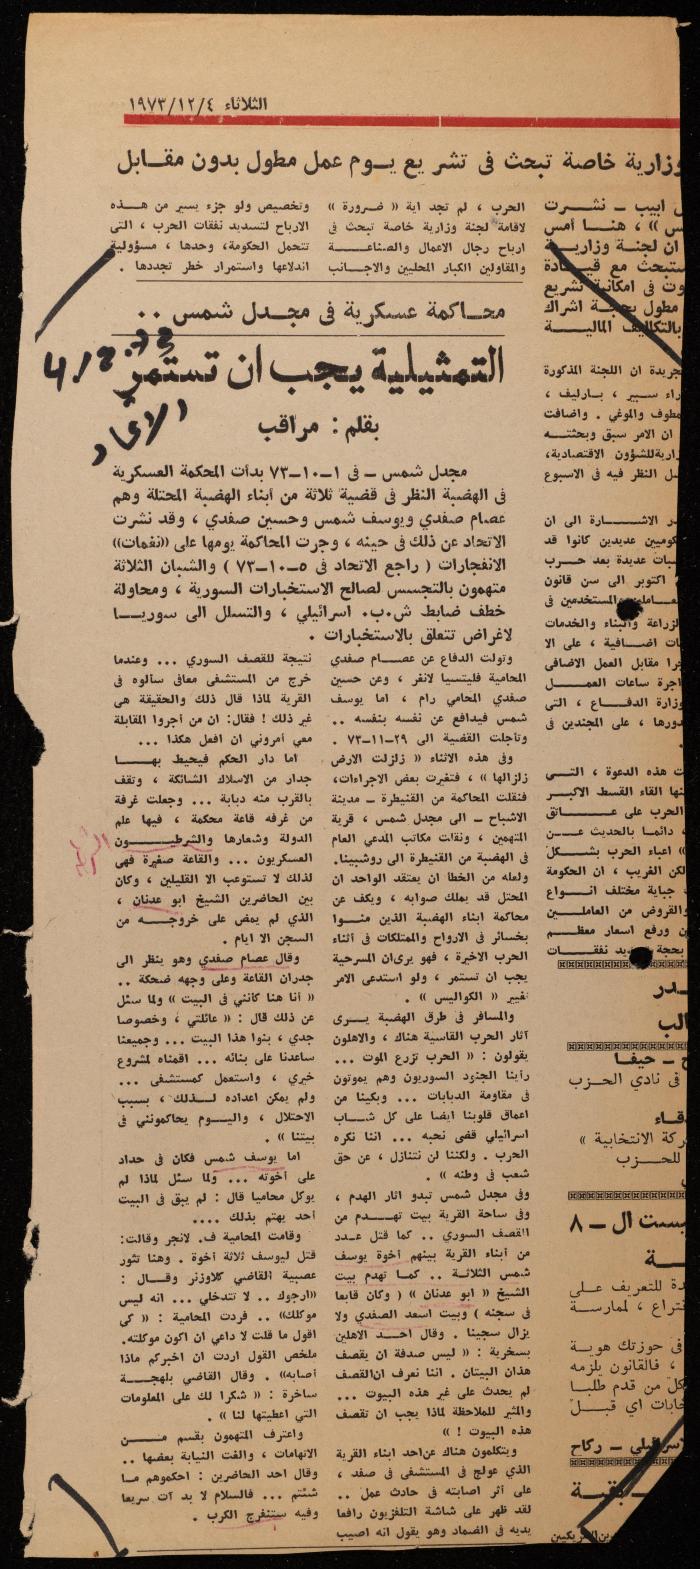 الثلاثاء ١٩٧٣/١٢/٤
وزارية خاصة تبحث فى تشريع يـوم عمل مطول بدون مقـابل
الحرب ، لم تجد اية « ضرورة »
لاقامة لجنة وزارية خاصة تبحث فى
ارباح رجال الاعمال والصناعـــة
والمقاولين الكبار المحليين والاجـانب
وتخصيص ولو جزء يسير من هـــذه
الارباح لتسديد نفقات الحرب ، التى
تتحمل الحكومة، وحدها ، مسؤولية
اندلاعها واستمرار خطر تجددها .
محـاكمة عسكرية فى مجـدل شمس ..
التمثيلية يـجب ان تستمر
الاتحاد
بقلم : مراقب
مجدل شمس ــ فى ١ـ١٠ـ٧٣ بدأت المحكمة العسكرية
فى الهضبة النظر فى قضية ثلاثة من أبناء الهضبة المحتلة وهم
عصام صفدي ويوسف شمس وحسين صفدي ، وقد نشرت
الاتحاد عن ذلك فى حينه ، وجرت المحاكمة يومها على «نغمات»
الانفجارات ( راجع الاتحاد فى ٥ـ١٠ـ٧٣ ) والشبان الثلاثة
متهمون بالتجسس لصالح الاستخبارات السورية ، ومحاولة
خطف ضابط ش.ب. اسرائيلي ، والتسلل الى سوريـــا
لاغراض تتعلق بالاستخبارات .
وتولت الدفاع عن عصـــام صفدي
المحامية فليتسيا لانغر ، وعن حسين
صفدي المحامي رام ، اما يوسف
شمس فيدافع عن نفسه بنفسه ..
وتأجلت القضية الى ٢٩ـ١١ـ٧٣ .
وفى هذه الاثناء « زلزلت الارض
زلزالها » ، فتغيرت بعض الاجراءات،
فنقلت المحاكمة من القنيطرة ــ مدينة
الاشباح ــ الى مجدل شمس ، قرية
المتهمين ، ونقلت مكاتب المدعي العام
فى الهضبة من القنيطرة الى روشبينا.
ولعله من الخطا ان يعتقد الواحد ان
المحتل قد يملك صوابه ، ويكف عن
محاكمة ابناء الهضبة الذين منــوا
بخسائر فى الارواح والممتلكات فى أثناء
الحرب الاخيرة ، فهو يرى ان المسرحية
يجب ان تستمر ، ولو استدعى الامر
تغيير « الكواليس » .
والمسافر فى طرق الهضبة يــرى
آثار الحرب القاسية هناك ، والاهلون
يقولون : « الحرب تزرع الموت ...
رأينا الجنود السوريون وهم يموتون
فى مقاومة الدبابات ... وبكينا من
اعماق قلوبنا ايضا على كل شــاب
اسرائيلي قضى نحبه ... اننا نكره
الحرب . ولكننا لن نتنازل ، عن حق
شعب فى وطنه » .
وفى مجدل شمس تبدو آثار الهدم ،
وفى ساحة القرية بيت تهــدم من
القصف السوري .. كما قتل عـدد
من أبناء القرية بينهم أخوة يوسف
شمس الثلاثـة .. كمـا تهدم بيت
الشيخ « ابو عدنان » ( وكان قابعا
فى سجنه ) وبيت اسعد الصفدي ولا
يزال سجينا . وقال احــد الاهلين
بسخرية : « ليس صدفة ان يقصف
هذان البيتان . اننا نعرف ان القصف
لم يحدث على غير هذه البيوت ...
والمثير للملاحظة لماذا يجب ان تقصف
هذه البيوت ! »
ويتكلمون هناك عن احد ابناء القرية
الذي عولج فى المستشفى فى صفد ،
على أثر اصابته فى حادث عمل ..
لقد ظهر على شاشة التلفزيون رافعا
يديه فى الضماد وهو يقول انه اصيب
نتيجة للقصف السوري ... وعندما
خرج من المستشفى معافى سألوه فى
القرية لماذا قال ذلك والحقيقة هى
غير ذلك ! فقال: ان من أجروا المقابلة
معي أمروني ان افعل هكذا ...
اما دار الحكم فيحيط بهـــا
جدار من الاسلاك الشائكة ، وتقف
بالقرب منه دبابة ... وجعلت غرفة
من غرفه قاعة محكمة ، فيها علم
الدولة وشعارها والشرطيـــون
العسكريون ... والقاعة صغيرة فهى
لذلك لا تستوعب الا القليلين ، وكان
بين الحاضرين الشيخ ابو عدنان ،
الذي لم يمض على خروجـــه من
السجن الا ايام .
وقال عصام صفدي وهو ينظر الى
جدران القاعة وعلى وجهه ضحكة ..
« أنا هنا كأننى فى البيت » ولما سئل
عن ذلك قال : « عائلتي ، وخصوصا
جدي ، بنوا هذا البيت ... وجميعنا
ساعدنا على بنائه ... اقمناه لمشروع
خيري ، واستعمل كمستشفى ...
ولم يمكن اعداده لــذلك ، بسبب
الاحتلال ، واليــوم يحاكموننى فى
بيتنا » .
اما يوسف شمس فكان فى حداد
على أخوته ... ولما سئل لماذا لم
يوكل محاميا قال : لم يبق فى البيت
أحد يهتم بذلك ....
وقامت المحامية ف. لانجر وقالت:
قتل ليوسف ثلاثة أخوة . وهنا تثور
عصبية القاضي كلاوزنر وقــال :
«ارجوك .. لا تتدخلي ... انه ليس
موكلك» .. فردت المحامية : « كى
اقول ما قلت لا داعي ان اكون موكلته.
ملخص القول اردت ان اخبركم ماذا
أصابه» . وقال القاضي بلهجــة
ساخرة : « شكرا لك على المعلومات
التي اعطيتها لنا » .
واعترف المتهمون بقسم مــــن
الاتهامات ، والغت النيابة بعضها ..
وقال احد الحاضرين : احكموهم مـا
شئتم ... فالسلام لا بد آت سريعا
وفيه ستنفرج الكرب .
ابيب ــ نشــرت
» ، هنــا أمس
ان لجنة وزاريـة
ستبحث مع قيــادة
فى امكانية تشريع
مطول بحجة اشراك
بالتكاليف الماليــة
ان اللجنة المذكورة
سبير ، بـارليف ،
والموغي . واضافت
ان الامر سبق وبحثتــه
للشؤون الاقتصادية،
النظر فيه فى الاسبوع
الاشـــارة الى ان
عديدين كانوا قد
عديدة بعد حـرب
اكتوبر الى سن قانون
والمستخدمين فى
والبناء والخدمات
اضــافية ، على الا
مقابل العمل الاضافى
اجرة ساعات العمــل
الدفــاع ، التى
، على المجندين فى
هذه الدعوة ، التــي
القاء القسط الاكبــر
الحرب على عــاتق
، دائمـا بالحديث عــن
اعباء الحرب بشــكل
الغريب ، ان الحكومة
جباية مختلف انــواع
والقروض من العاملــين
ورفع اسعار معظــم
نفقــات
ــ حيفـا
فى نادي الحـزب
الانتخابية »
للحــزب
ال ــ ٨
للتعريف علـى
، لممارسـة
فى حوزتك هويـة
، فالقانون يلزمه
من قدم طلبـا
اي قبــل
ــ ركاح